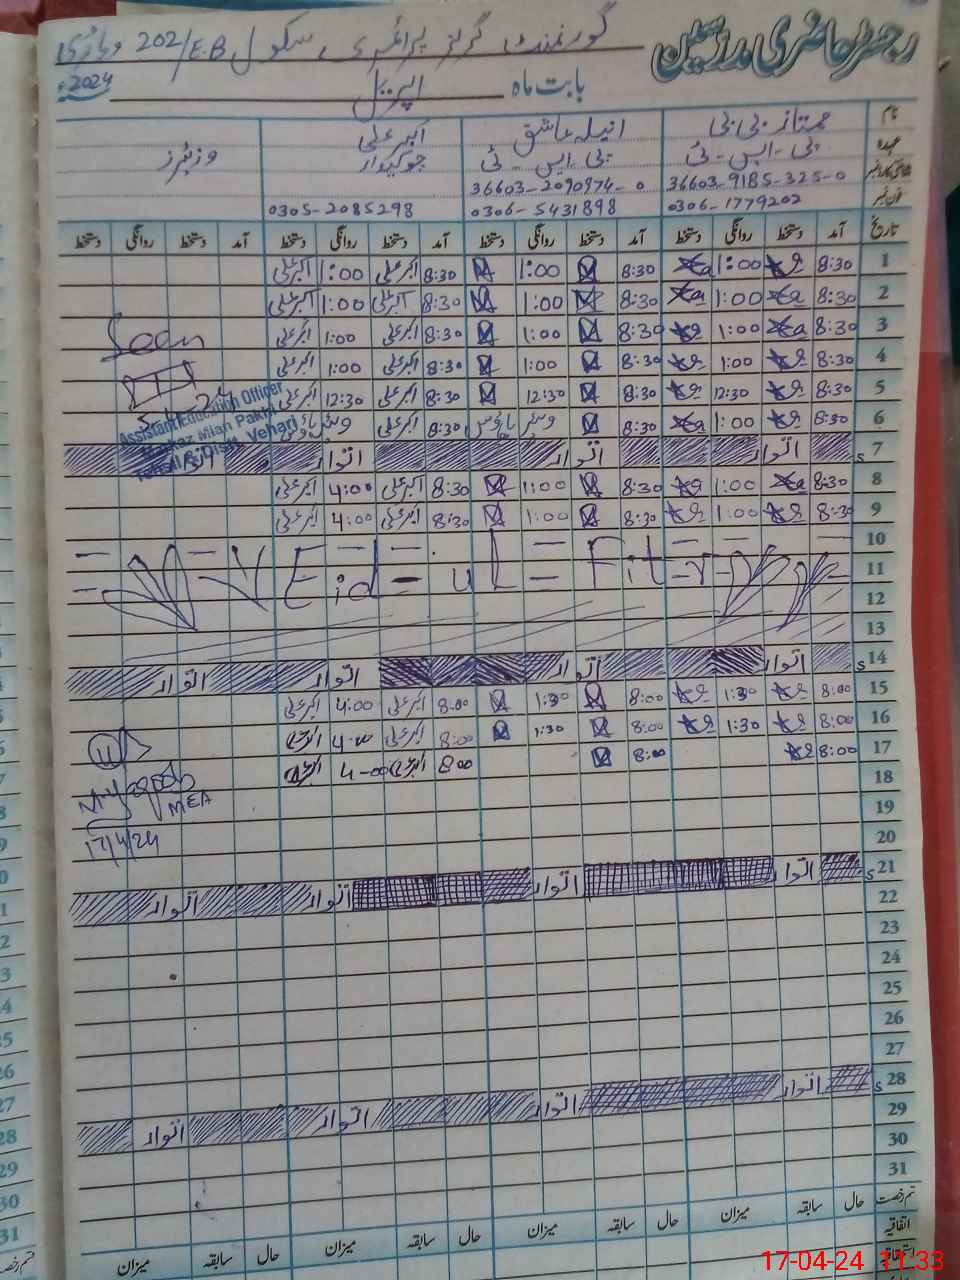 رجسٹر حاضری مدرسین
گورنمنٹ گرلز پرائمری سکول 202/E.B وہاڑی
بابت ماہ اپریل 2024ء
نام ممتاز بی بی انیلہ عاشق اکبر علی وزیٹرز
عہدہ پی۔ایس۔ٹی پی۔ایس۔ٹی چوکیدار
شناختی کارڈ نمبر 36603-9185-325-0 36603-2090974-0
فون نمبر 0306-1779202 0306-5431898 0305-2085298
تاریخ آمد دستخط روانگی دستخط آمد دستخط روانگی دستخط آمد دستخط روانگی دستخط آمد دستخط روانگی دستخط
1 8:30 1:00 8:30 1:00 8:30 اکبر علی 1:00 اکبر علی
2 8:30 1:00 8:30 1:00 8:30 اکبر علی 1:00 اکبر علی
3 8:30 1:00 8:30 1:00 8:30 اکبر علی 1:00 اکبر علی
Seen
4 8:30 1:00 8:30 1:00 8:30 اکبر علی 1:00 اکبر علی
5 8:30 12:30 8:30 12:30 8:30 اکبر علی 12:30 اکبر علی
6 8:30 1:00 8:30 8:30 اکبر علی
Assistant Education Officer
Markaz Mian Pakhi
Tehsil & Distt Vehari
7 S اتوار اتوار اتوار اتوار
8 8:30 1:00 8:30 1:00 8:30 اکبر علی 4:00 اکبر علی
9 8:30 1:00 8:30 1:00 8:30 اکبر علی 4:00 اکبر علی
10
11 Eid - ul - Fitr
12
13
14 S اتوار اتوار اتوار اتوار
15 8:00 1:30 8:00 1:30 8:00 اکبر علی 4:00 اکبر علی
16 8:00 1:30 8:00 1:30 8:00 اکبر علی 4:00 اکبر علی
17 8:00 8:00 8:00 اکبر علی 4:00 اکبر علی
18
MEA
19
20
17/4/24
21 S اتوار اتوار اتوار اتوار
22
23
24
25
26
27
28 S اتوار اتوار اتوار اتوار
29
30
31
قسم رخصت حال سابقہ میزان حال سابقہ میزان حال سابقہ میزان
اتفاقیہ
17-04-24 11:33